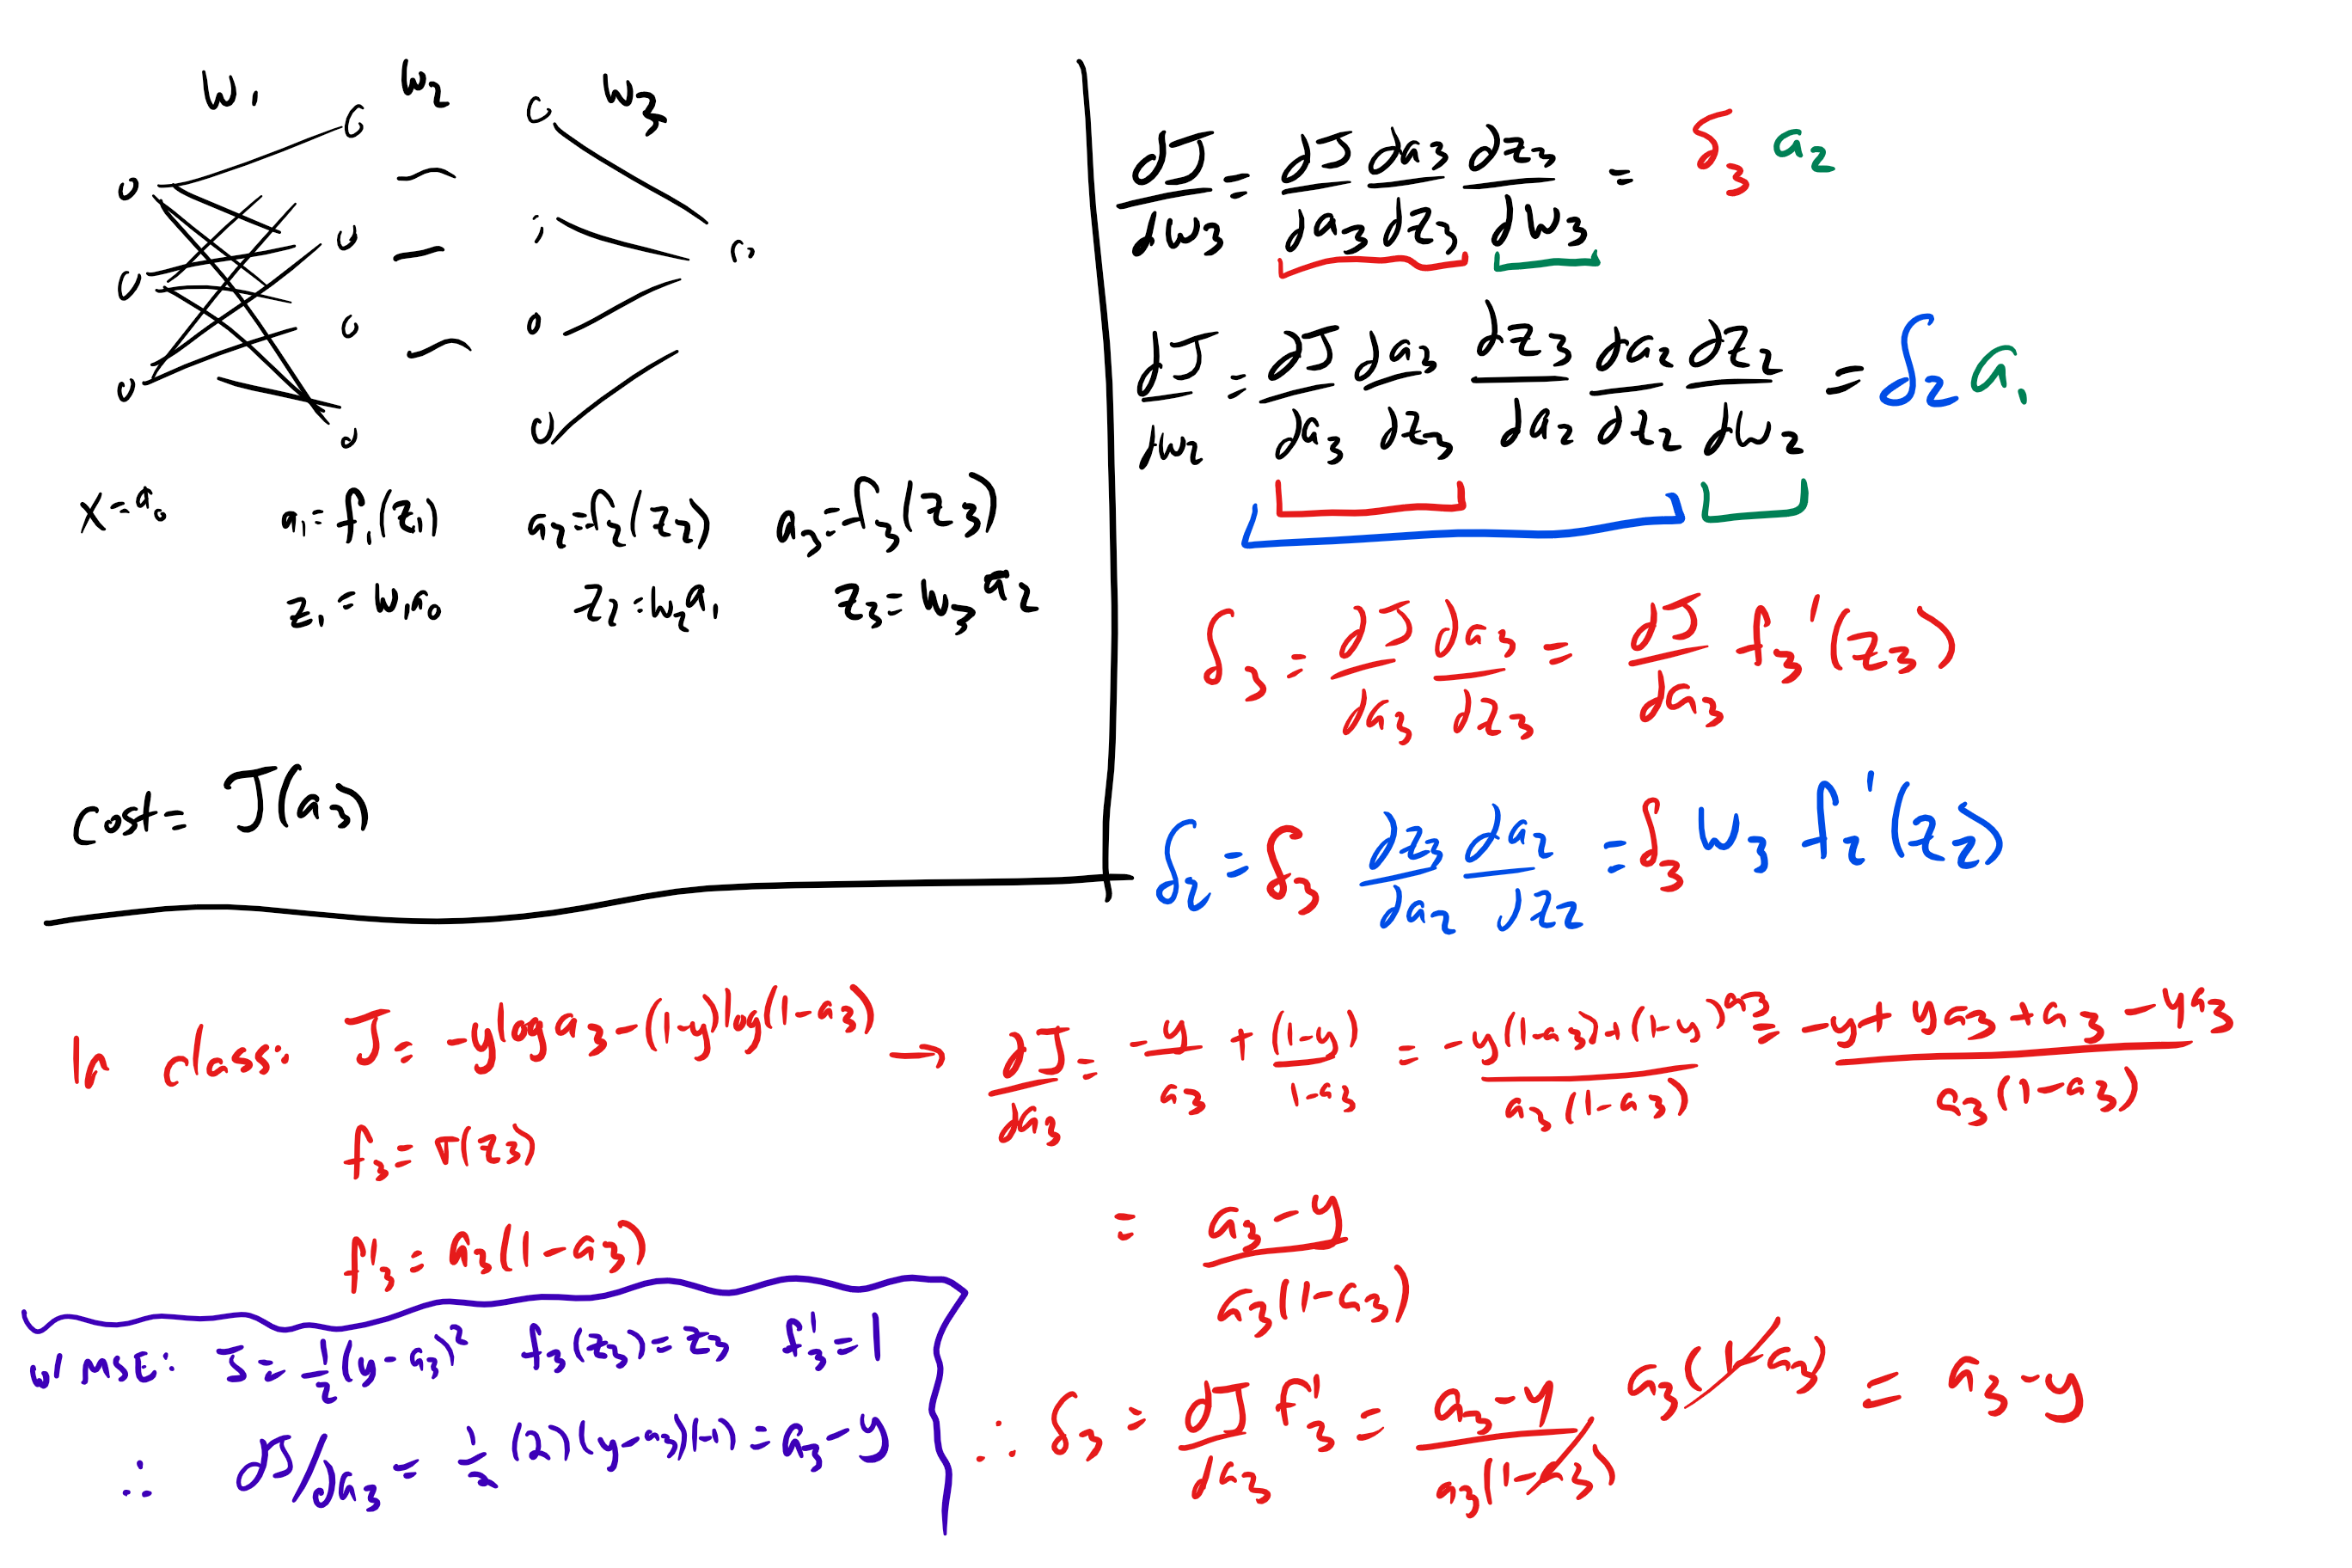 W₁ W₂ W₃
x = a₀ a₁ = f₁(z₁) a₂ = f₂(z₂) a₃ = f₃(z₃)
z₁ = W₁a₀ z₂ = W₂a₁ z₃ = W₃a₂
cost = J(a₃)
dJ/dW₃ = dJ/da₃ da₃/dz₃ dz₃/dW₃ = δ₃ a₂
dJ/dW₂ = dJ/da₃ da₃/dz₃ dz₃/da₂ da₂/dz₂ dz₂/dW₂ = δ₂ a₁
δ₃ = dJ/da₃ da₃/dz₃ = dJ/da₃ f₃'(z₃)
δ₂ = δ₃ dz₃/da₂ da₂/dz₂ = δ₃ W₃ f₂'(z₂)
In class: J = -y log a₃ - (1-y) log(1-a₃) → dJ/da₃ = -y/a₃ + (1-y)/(1-a₃) = (-y(1-a₃)+(1-y)a₃)/(a₃(1-a₃)) = (-y + ya₃ + a₃ - ya₃)/(a₃(1-a₃))
f₃ = σ(z₃)
= (a₃-y)/(a₃(1-a₃))
f'₃ = a₃(1-a₃)
∴ δ₃ = dJ/da₃ f'₃ = (a₃-y)/(a₃(1-a₃)) a₃(1-a₃) = a₃-y
w/ MSE: J = 1/2(y-a₃)² f₃(z₃) = z₃ f'₃ = 1
∴ dJ/da₃ = 1/2 (2)(y-a₃)(-1) = a₃-y